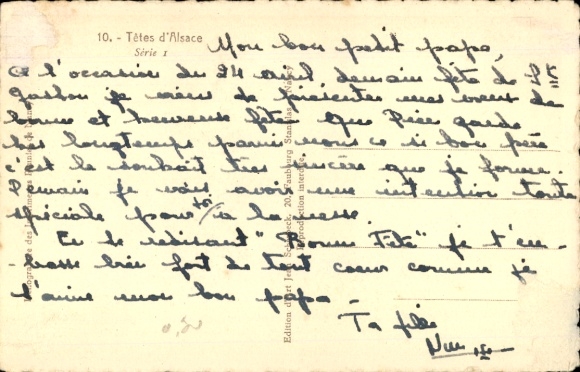 10. - Têtes d'Alsace
Série 1
Mon bon petit papa,
A l'occasion du 24 avril, demain fête de St
Gaston je viens de présenter mes vœux de
bonne et heureuse fête. Que Dieu garde
longtemps parmi nous ce si bon père
c'est le souhait très sincère que je forme.
Demain je vais avoir une intention toute
spéciale pour toi à la messe.
En te redisant "Bonne Fête" je t'em-
-brasse bien fort de tout coeur comme je
t'aime mon bon papa.
Ta fille
0,20
Edition d'Art Jean 20, Faubourg Stanislas, Nancy
Reproduction interdite.